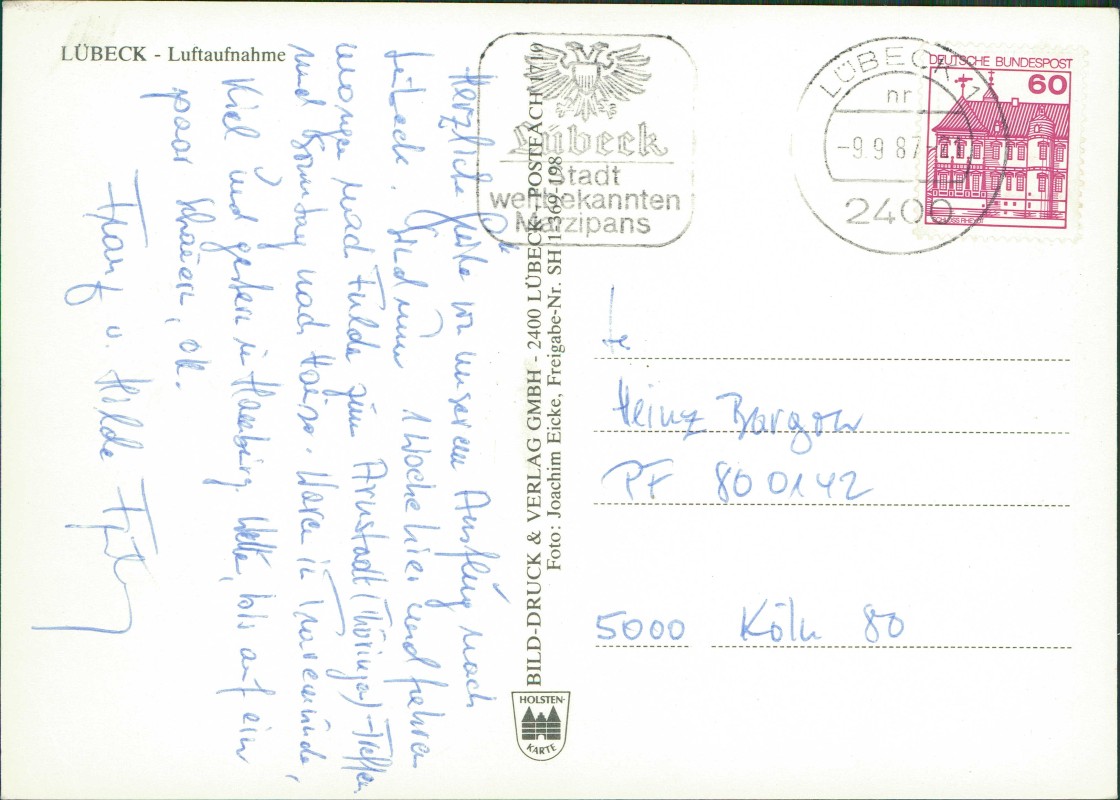 LÜBECK - Luftaufnahme
Herzliche Grüße von unserem Ausflug nach
Lübeck. Sind nun 1 Woche hier und fahren
morgen nach Fulda zum Arnstadt (Thüringen)-Treffen
und Sonntag nach Hause. Waren in Travemünde,
Kiel und gestern in Hamburg. Wetter, bis auf ein
paar Schauern, ok.
Franz u. Hilde
BILD-DRUCK & VERLAG GMBH - 2400 LÜBECK - POSTFACH 1719
Foto: Joachim Eicke, Freigabe-Nr. SH 1369-198
HOLSTEN-
KARTE
Lübeck
Stadt
weltbekannten
Marzipans
LÜBECK 1
nr
-9.9.87-
2400
DEUTSCHE BUNDESPOST
60
SCHLOSS RHEYDT
Heinz Bargon
PF 800142
5000 Köln 80